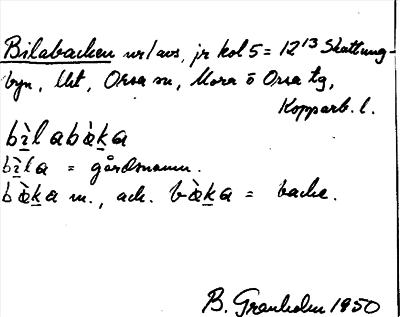 Bilabacken nr/avs, jr kol 5 = 12¹³ Skattung-
byn, Utt, Orsa sn, Mora o Orsa tg,
Kopparb. l.
bìlabàka
bìla = gårdsnamn.
bàka m., ack. bàka = backe.
B. Granholm 1950